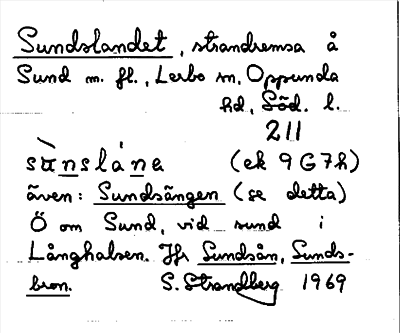 Sundslandet, strandremsa å
Sund m. fl., Lerbo sn, Oppunda
hd, Söd. l.
211
sùnslána (ek 9G7h)
även: Sundsängen (se detta)
Ö om Sund, vid sund i
Långhalsen. Jfr Sundsån, Sunds-
bron. S. Strandberg 1969